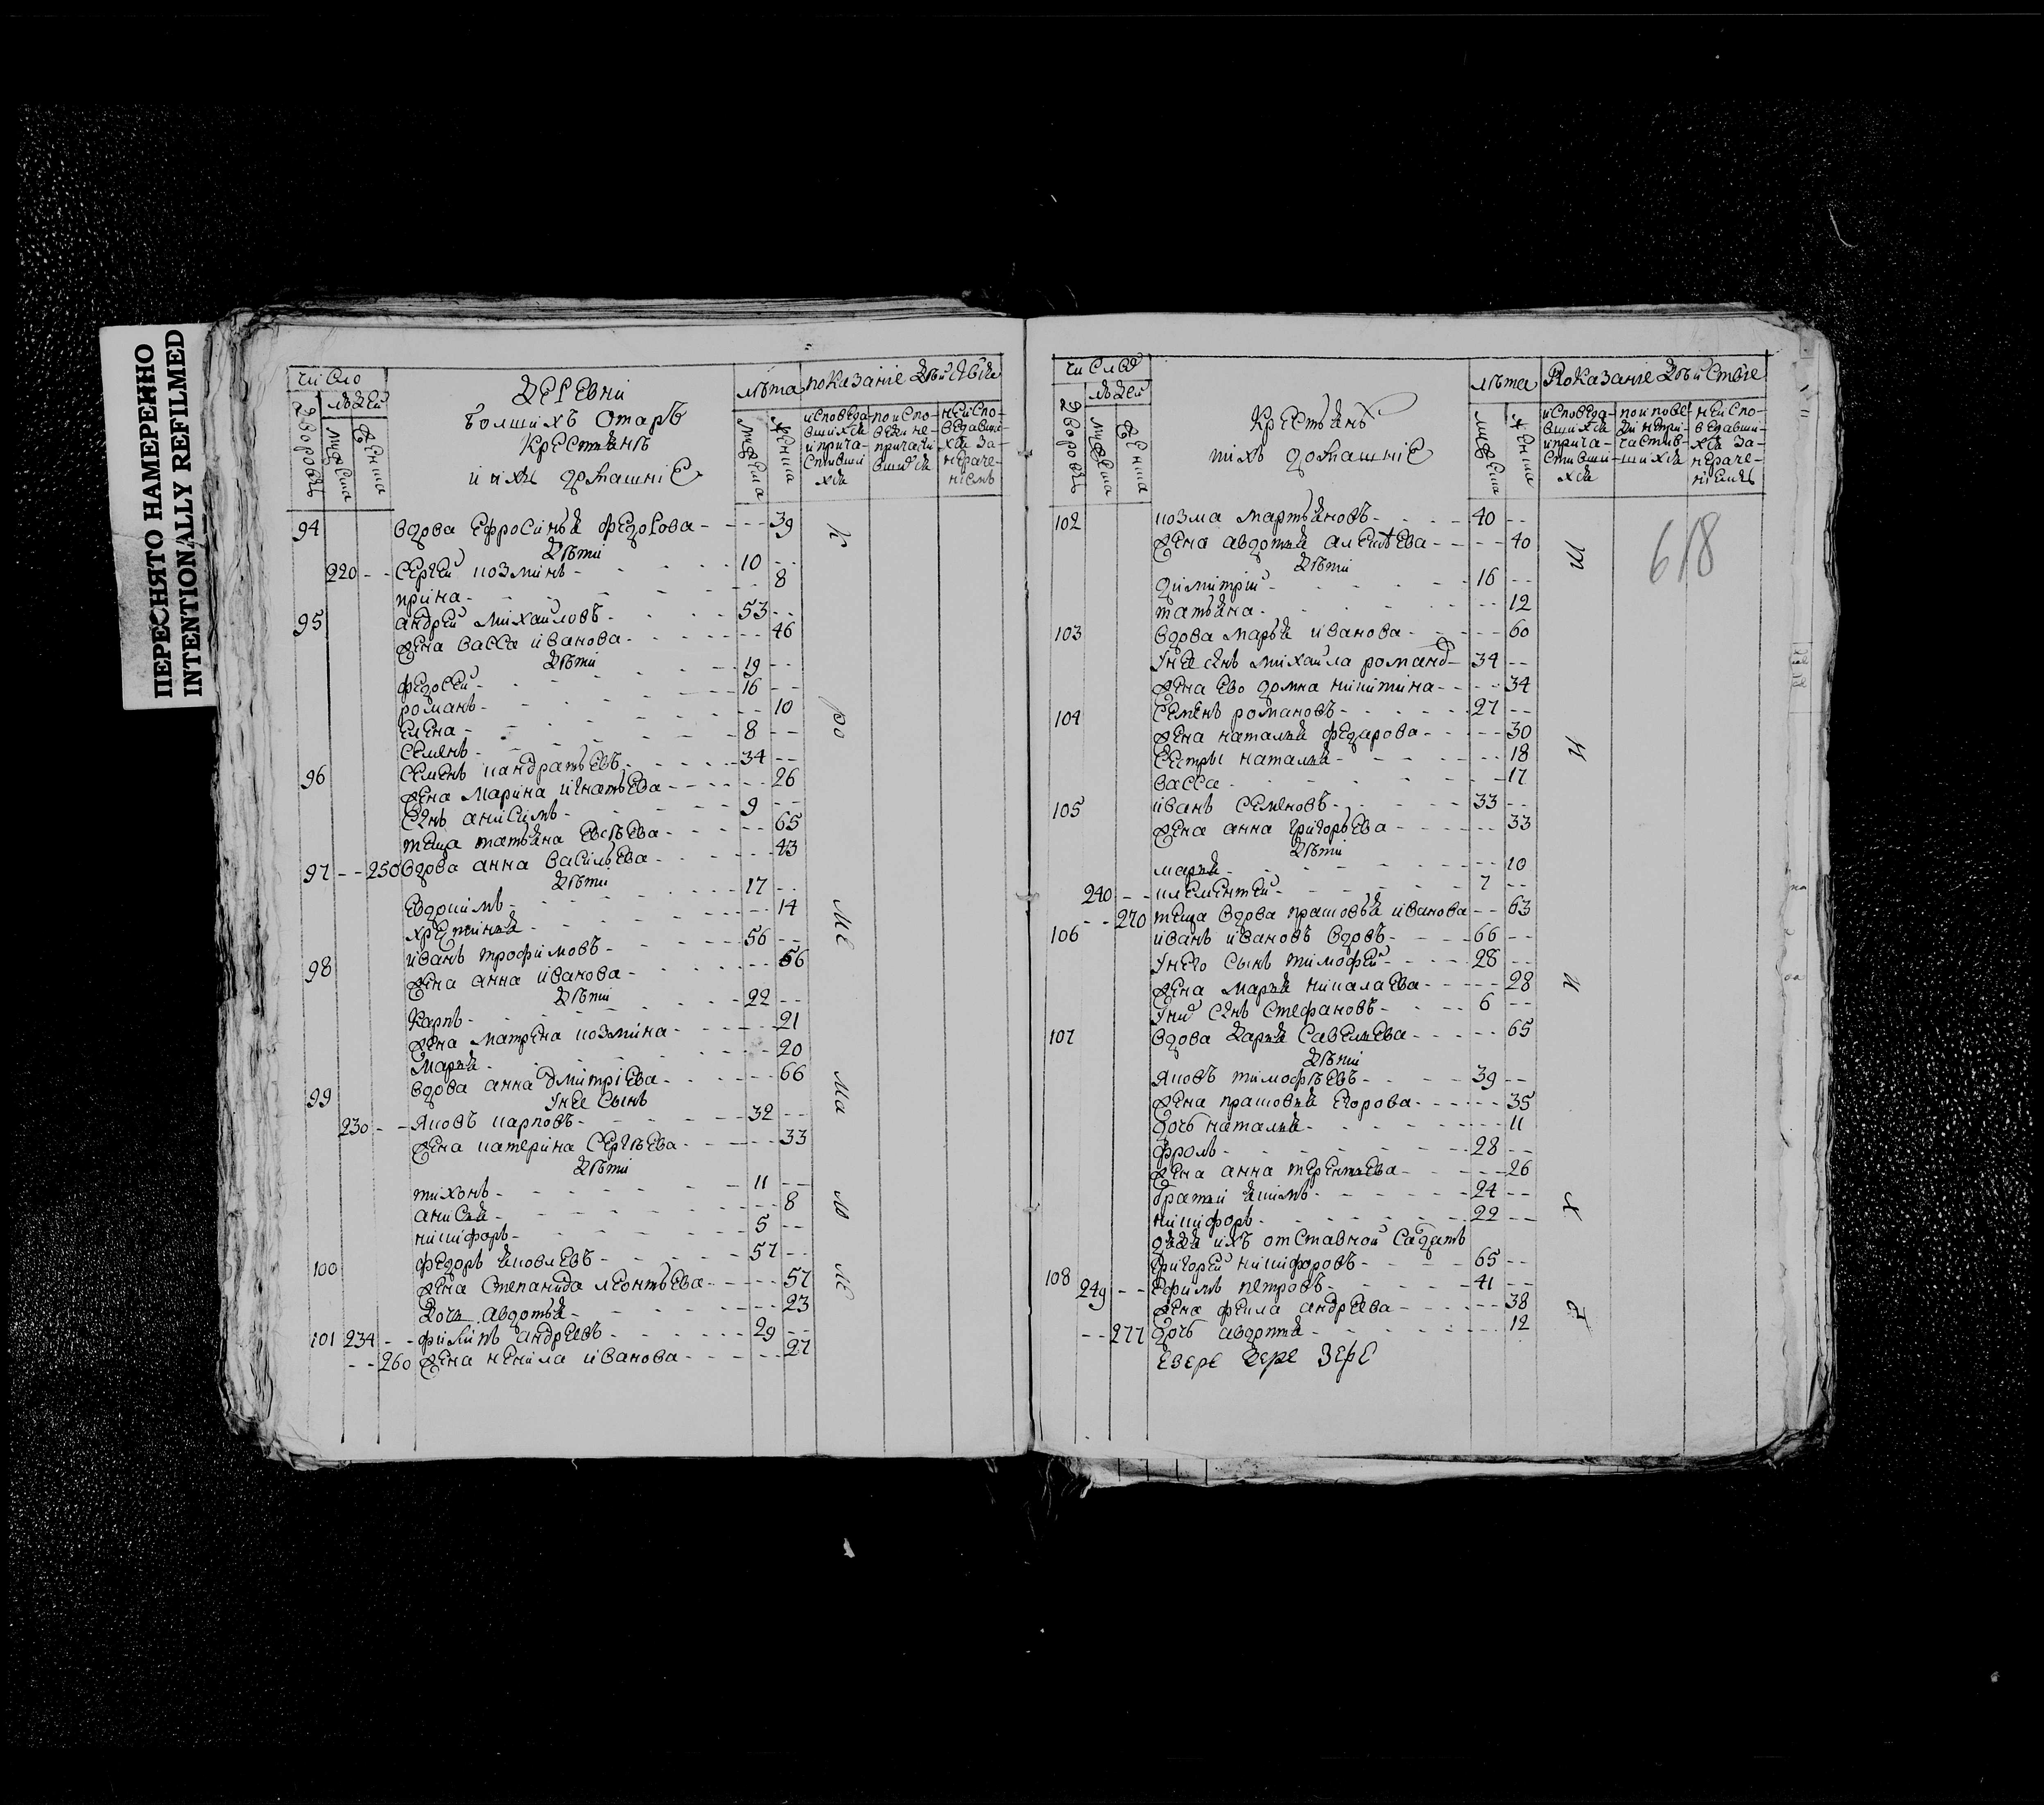 ПЕРЕСНЯТО НАМЕРЕННО
INTENTIONALLY REFILMED
число
людей
дворовъ
мужеска
женска
деревни
болшихъ отаръ
крестьянъ
и ихъ домашние
лѣта
мужеска
женска
показание действия
исповеда-
вшихся
и прича-
стивши
хся
по испо-
веди не-
причасти
вшихся
не испо-
ведавши-
хся за-
нераче-
ниемъ
94 вдова Ефросинья федорова - 39
дѣти
220 - - Сергей козминъ - 10 - -
ирина - 8
95 андрей михаиловъ - 53 - -
жена васса иванова - 46
дѣти
федосей - 19 - -
романъ - 16 - -
елена - 10
семенъ - 8 - -
96 семенъ кандратьевъ - 34 - -
жена марина игнатьева - 26
сынъ анисимъ - 9 - -
теща татьяна евсѣева - 65
97 - - 250 вдова анна васильева - 43
дѣти
евдокимъ - 17 - -
хрестинья - 14
98 иванъ трофимовъ - 56 - -
жена анна иванова - 56
дѣти
карпъ - 22 - -
жена матрена козмина - 21
марья - 20
99 вдова анна дмитриева - 66
у нея сынъ
230 - - яковъ карповъ - 32 - -
жена катерина сергѣева - 33
дѣти
тихонъ - 11 - -
анисья - 8
никифоръ - 5 - -
100 федоръ яковлевъ - 57 - -
жена степанида леонтьева - 57
дочь авдотья - 23
101 234 - - филипъ андреевъ - 29 - -
- - 260 жена ненила иванова - 27
к
ро
ме
ма
ю
ле
число
людей
дворовъ
мужеска
женска
крестьянъ
ихъ домашние
лѣта
мужеска
женска
показание действие
исповеда-
вшихся
и прича-
стивши-
хся
не испо-
ведавши-
хся за-
нераче-
ниемъ
618
102 козма мартьяновъ - 40 - -
жена авдотья алексѣева - 40
дѣти
димитрий - 16 - -
татьяна - 12
103 вдова марья иванова - 60
у нея сынъ михаила романо - 34 - -
жена ево домна никитина - 34
104 семенъ романовъ - 27 - -
жена наталья федарова - 30
сестры наталья - 18
васса - 17
105 иванъ семеновъ - 33 - -
жена анна григорьева - 33
дѣти
марья - 10
240 - - клементей - 7 - -
- - 270 теща вдова прасковья иванова - - 63
106 иванъ ивановъ вдовъ - 66 - -
у него сынъ тимофей - 28 - -
жена марья никалаева - 28
у них сынъ стефановъ - 6 - -
107 вдова дарья савельева - 65
дѣти
яковъ тимофѣевъ - 39 - -
жена прасковья егорова - 35
дочь наталья - 11
фролъ - 28 - -
жена анна терентьева - 26
братья якимъ - 24 - -
никифоръ - 22 - -
дядя ихъ отставной салдатъ
григорей никифоровъ - 65 - -
108 249 - - ефимъ петровъ - 41 - -
жена фекла андреева - 38
- - 277 дочь авдотья - 12
т
н
и
х
ъ